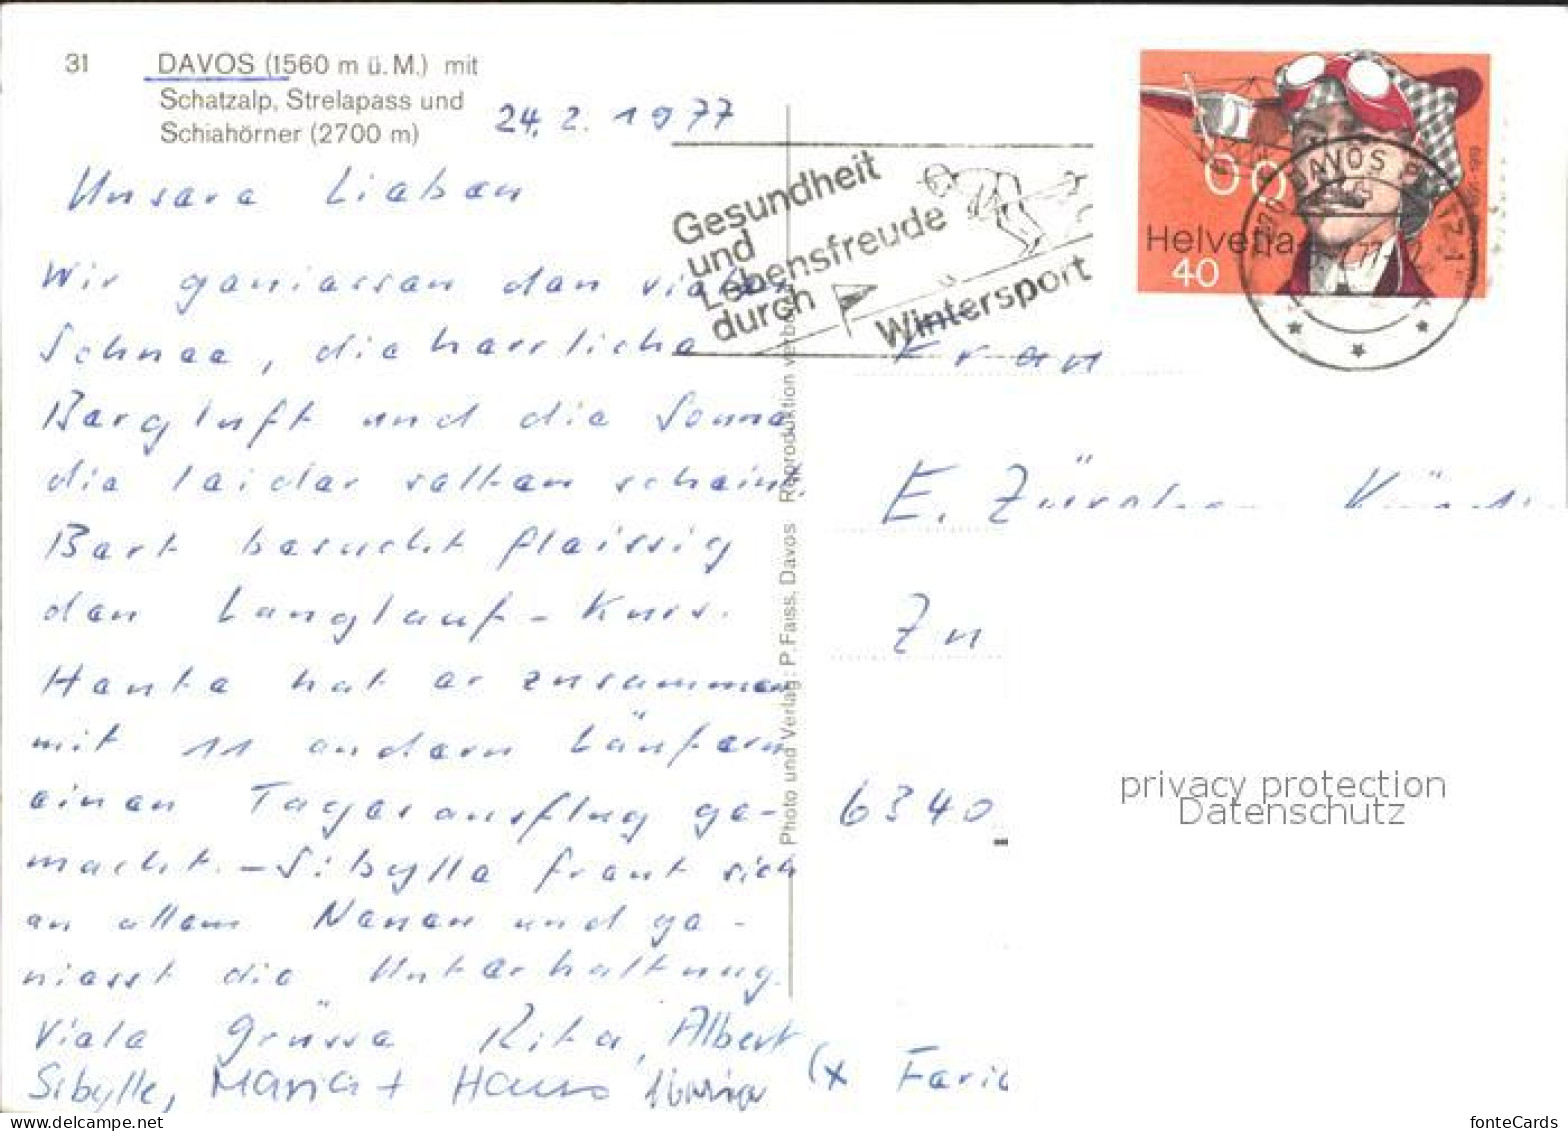 31 DAVOS (1560 m ü. M.) mit
Schatzalp, Strelapass und
Schiahörner (2700 m)
24. 2. 1977
Unsere Lieben
Wir geniessen den viele
Schnee, die herrliche
Bergluft und die Sonne
die leider selten scheint.
Bert besucht fleissig
den Langlauf-Kurs.
Heute hat er zusammen
mit 11 andern Läufern
einen Tagesausflug ge-
macht. – Sibylle freut sich
an allem Neuen und ge-
niesst die Unterhaltung.
Viele Grüsse Rita, Albert
Sibylle, Maria + Hans
(x Feri
Photo und Verlag: P. Faiss, Davos Reproduktion verbo
Gesundheit
und
Lebensfreude
durch
Wintersport
Helvetia
40
DAVOS P
Frau
E. Zürcher
Zu
6340
privacy protection
Datenschutz
fonteCards